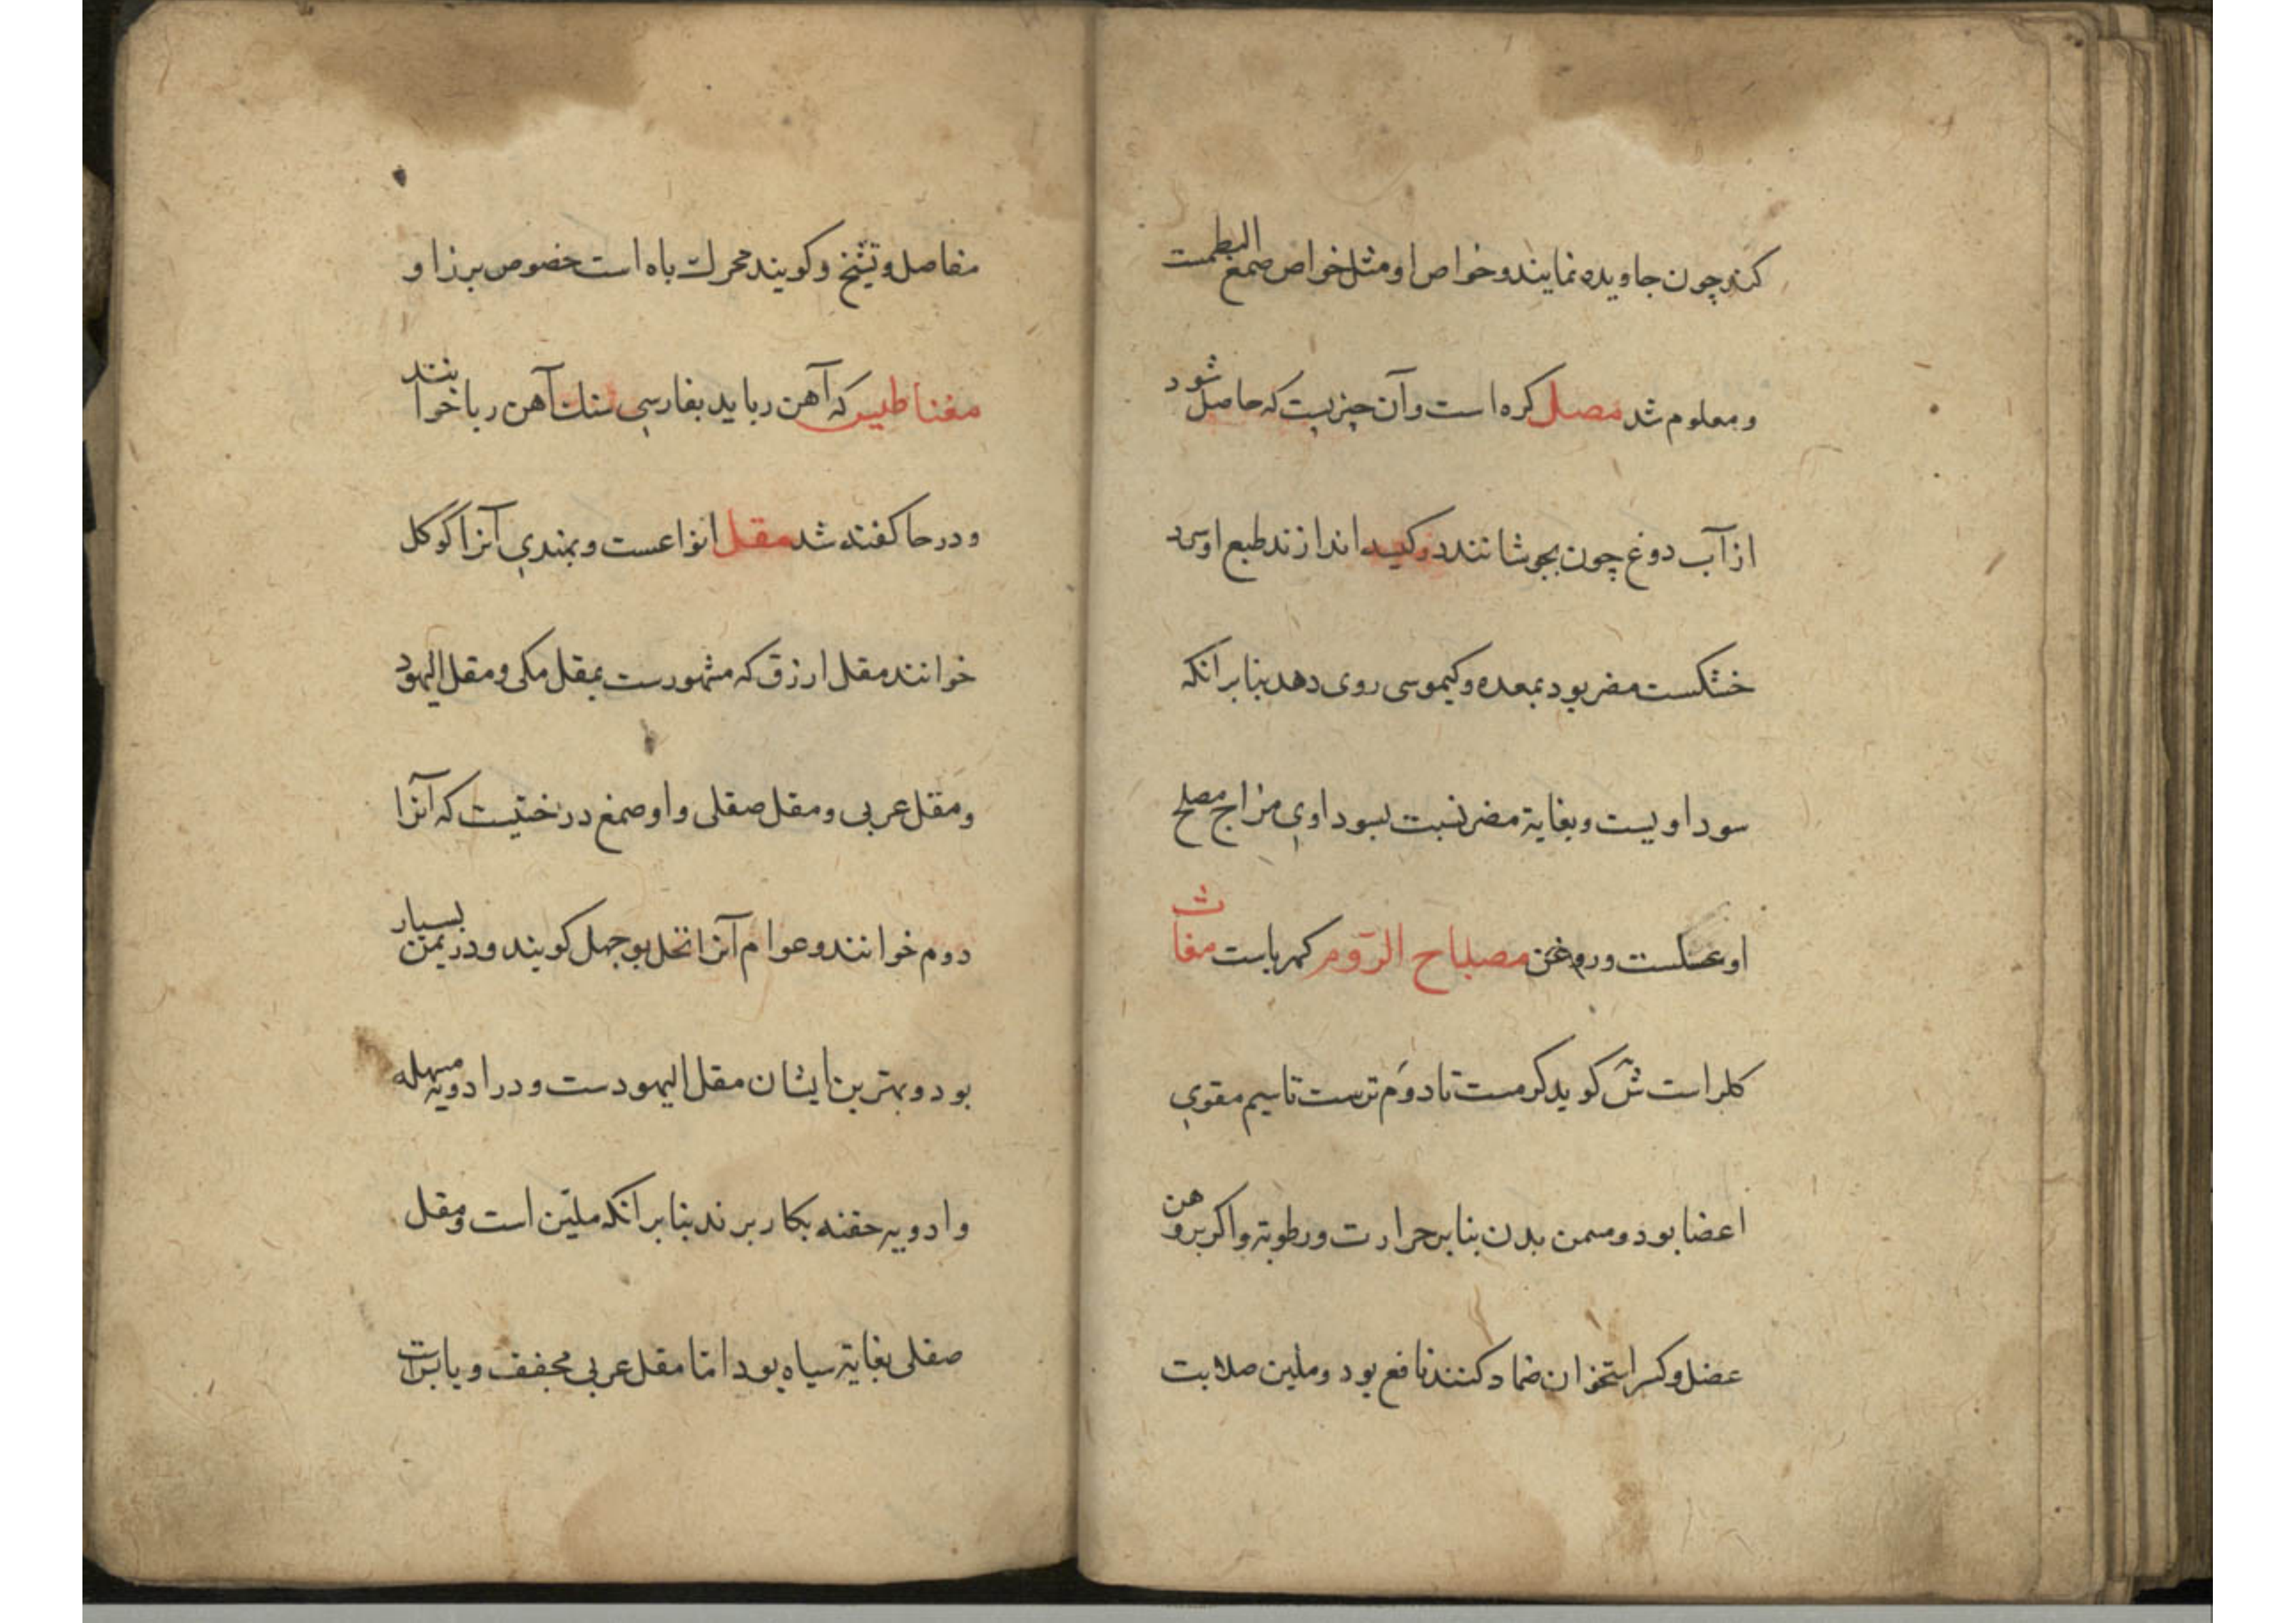 کند چون جاویده نمایند و خواص او مثل خواص صمغ البطمست
و معلوم شد مصل کره است و آن چیزیست که حاصل شود
از آب دوغ چون بجوشانند در کیسه اندازند طبع او سرد
خشکست مضر بود بمعده و کیموسی روی دهد بنابر انکه
سوداویست و بغایة مضر نسبت بسوداوی مزاج مصلح
او عسلست و روغن مصباح الروم کهرباست مغاث
کلبراست ش کوید کرمست تا دوم ترست تا سیم مقوی
اعضا بود و مسمن بدن بنابر حرارت و رطوبة و اکر بر وهن
عضل و کسر استخوان ضماد کنند نافع بود و ملین صلابت
مفاصل و تشنج و کویند محرک باه است خصوص برز او
مغناطیس که آهن رباید بفارسی سنک آهن ربا خوانند
و در حا کفته شد مقل انواعست و بهندی آنرا کوکل
خوانند مقل ازرق که مشهورست بمقل مکی و مقل الیهود
و مقل عربی و مقل صقلی و او صمغ درختیست که آنرا
دوم خوانند و عوام آنرا نخل بوجهل کویند و در یمن بسیار
بود و بهترین ایشان مقل الیهودست و در ادویه مسهله
و ادویه حقنه بکار برند بنابر انکه ملین است و مقل
صقلی بغایة سیاه بود اما مقل عربی مجفف و یابس است